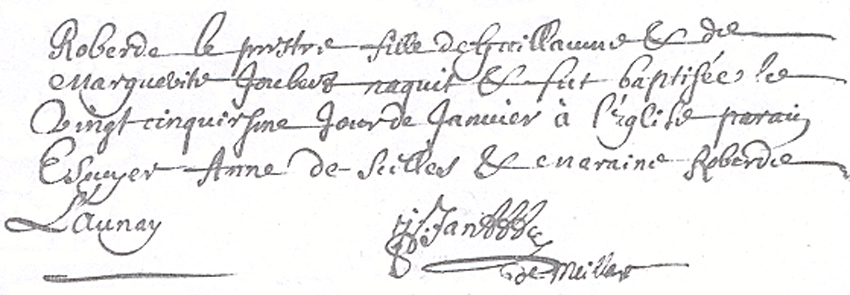 Roberde le prestre fille de Guillaume & de
Marguerite Joubert naquit & fut baptisée le
Vingt cinquiesme Jour de Janvier à l'Églisse parain
Escuyer Anne de Seilles & maraine Roberde
Launay
de Meillar